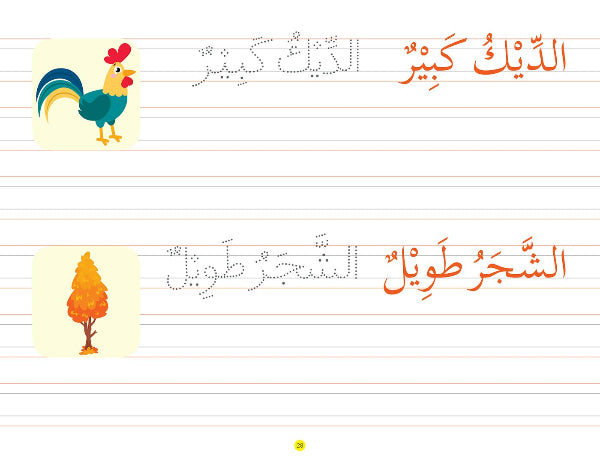 الدِّيْكُ كَبِيْرٌ الدِّيْكُ كَبِيْرٌ
الشَّجَرُ طَوِيْلٌ الشَّجَرُ طَوِيْلٌ
28